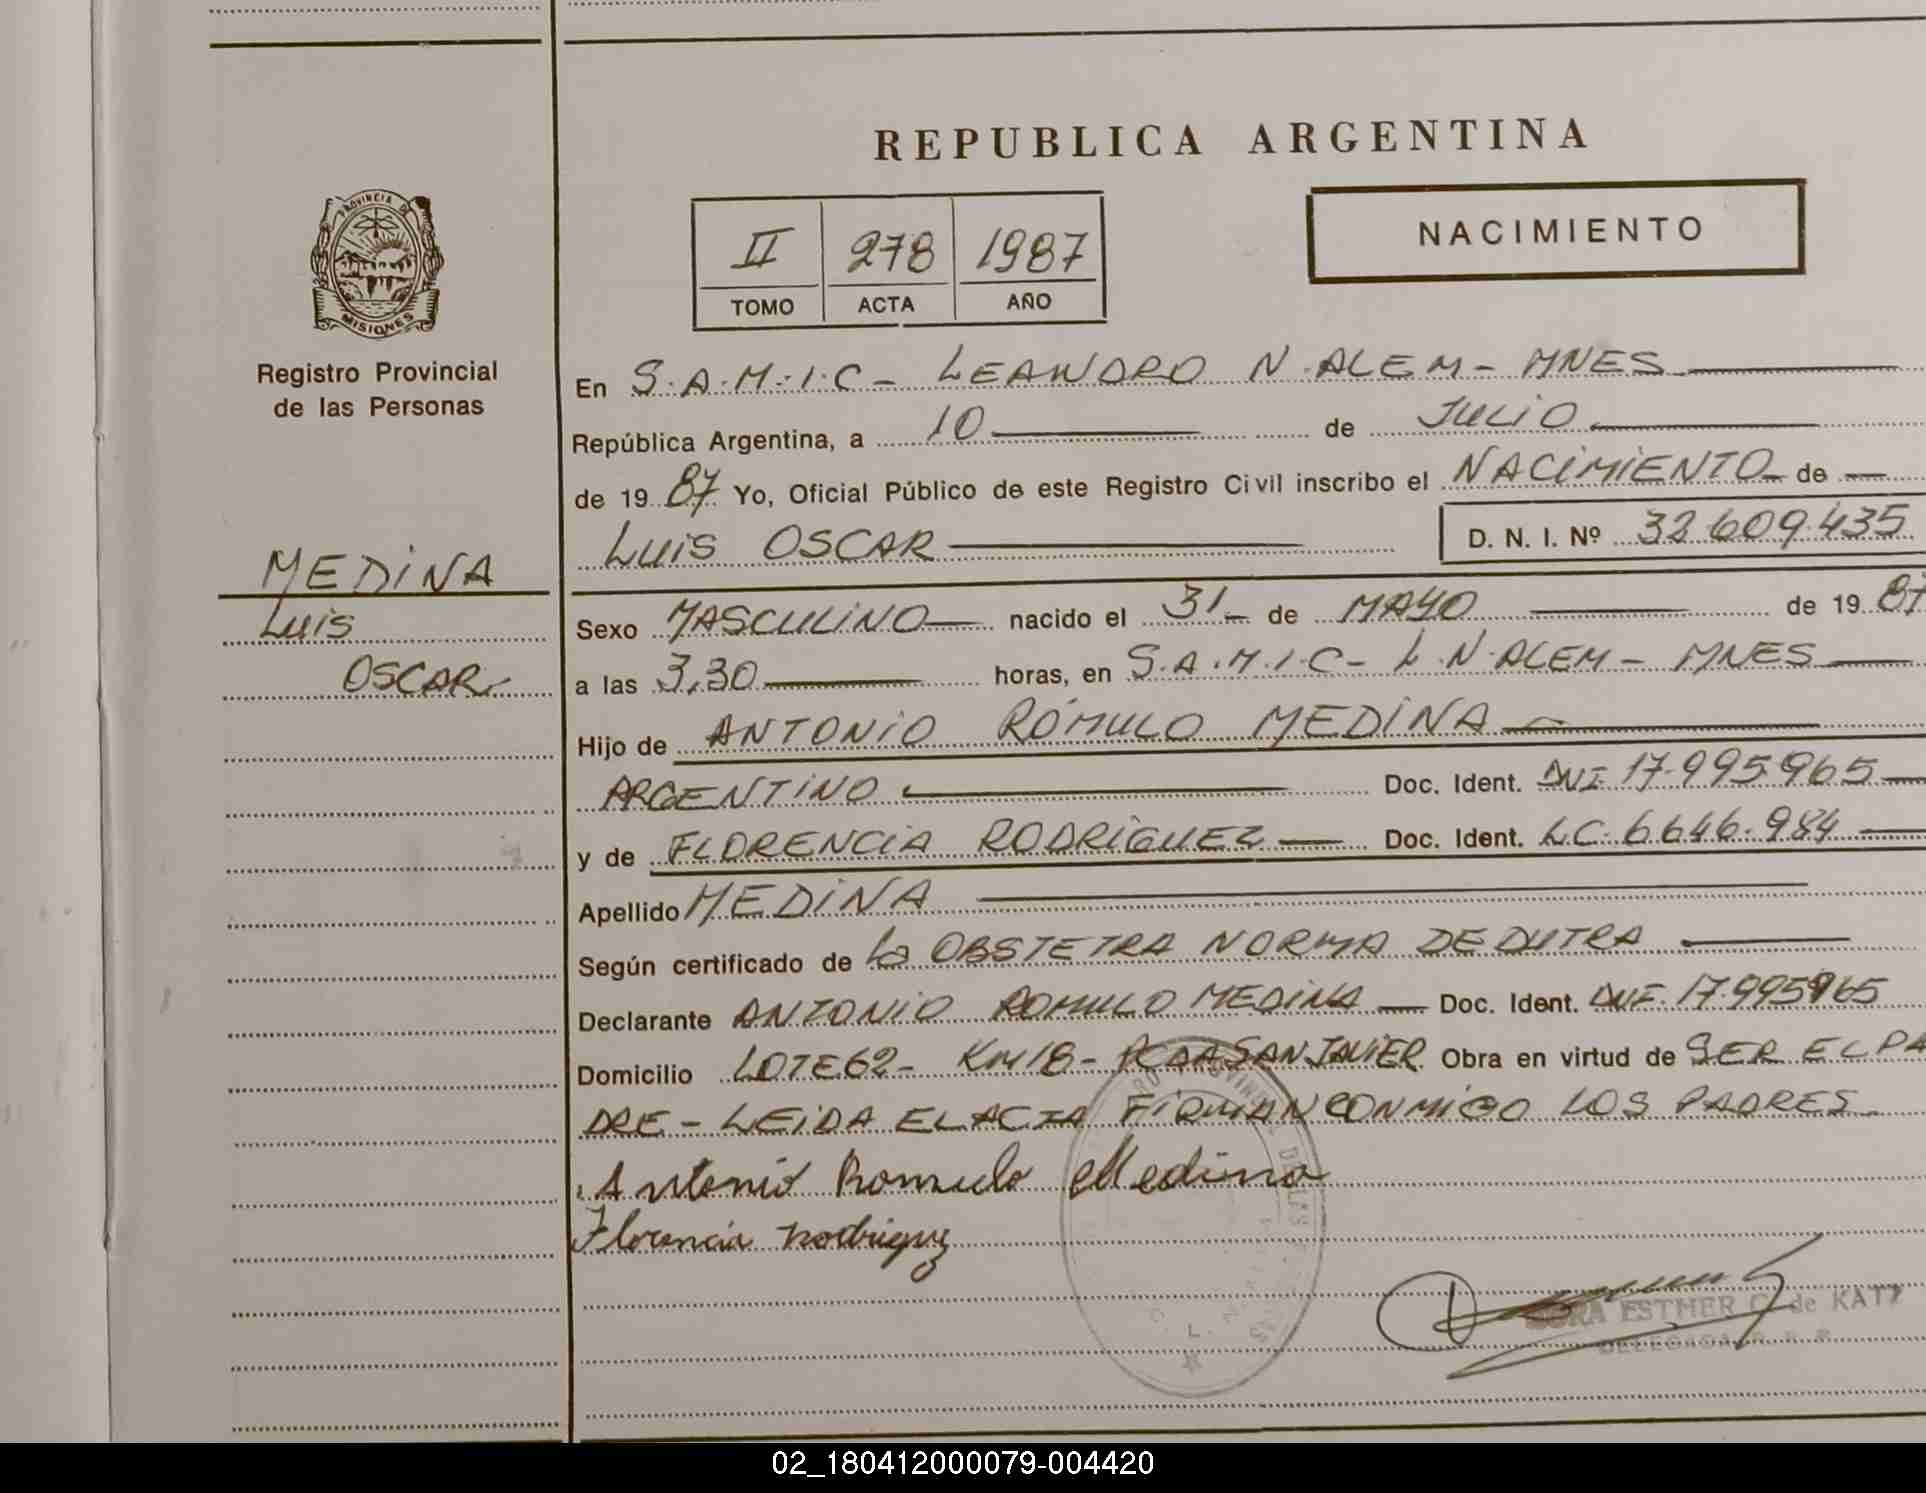 REPUBLICA ARGENTINA
PROVINCIA DE
MISIONES
Registro Provincial
de las Personas
MEDINA
LUIS
OSCAR
II 278 1987
TOMO ACTA AÑO
NACIMIENTO
En S.A.M.I.C- LEANDRO N. ALEM - MNES
República Argentina, a 10 de JULIO
de 19 87 Yo, Oficial Público de este Registro Civil inscribo el NACIMIENTO de
LUIS OSCAR D. N. I. Nº 32.609.435
Sexo MASCULINO nacido el 31 de MAYO de 19 87
a las 3,30 horas, en S.A.M.I.C- L.N. ALEM - MNES
Hijo de ANTONIO RÓMULO MEDINA
ARGENTINO Doc. Ident. DNI 17.995.965
y de FLORENCIA RODRÍGUEZ Doc. Ident. LC. 6.646.984
Apellido MEDINA
Según certificado de la OBSTETRA NORMA DE DUTRA
Declarante ANTONIO ROMULO MEDINA Doc. Ident. DNI. 17.995965
Domicilio LOTE 62- KM 18- SAN JAVIER Obra en virtud de SER EL PA
DRE - LEIDA EL ACTA FIRMAN CONMIGO LOS PADRES
Antonio Romulo Medina
Florencia Rodriguez
ESTHER C. de KATZ
02_180412000079-004420